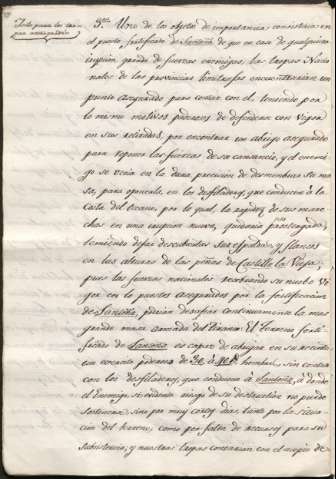 Punto para las tro-
pas
3.º Uno de los objetos de importancia consistiria en
el punto fortificado de Santoña de que en caso de qualquiera
irupcion grande de fuerzas enemigas, las tropas Nacio
nales de las provincias limitrofes encontrarian un
punto asegurado para contar con el, teniendo por
lo mismo motivos poderosos de defenderse con vigor
en sus actitudes, por encontrar un abrigo asegurado
para reponer las fuerzas de su cansancio, y el enemi
go se veria en la dura precision de desmembrar su ma
sa, para apoyarla en los desfiladeros, que conducen á la
costa del Oceano, por lo qual, la rapidez de sus mar
chas en una irupcion nueva, quedaria postergada,
temiendo dejar descubiertas sus espaldas, y flancos
en las alturas de las peñas de Castilla la Vieja,
pues las fuerzas nacionales acordando su nuebo Vi
gor en los puntos asegurados por la fortificacion
de Santoña, podrian desafiar continuamente la mas
grande masa armada del Enemigo. El terreno forti
ficado de Santoña es capaz de abrigar en su recinto
un exercito poderoso de 30 á 40 hombres, sin contar
con los desfiladeros, que conducen á Santoña, á donde
el Enemigo sin evidente riesgo de su destruccion no puede
sostenerse sino por muy cortos dias tanto por la situa
cion del terreno, como por falta de recursos para su
subsistencia, y nuestras tropas contarian con el auxilio de